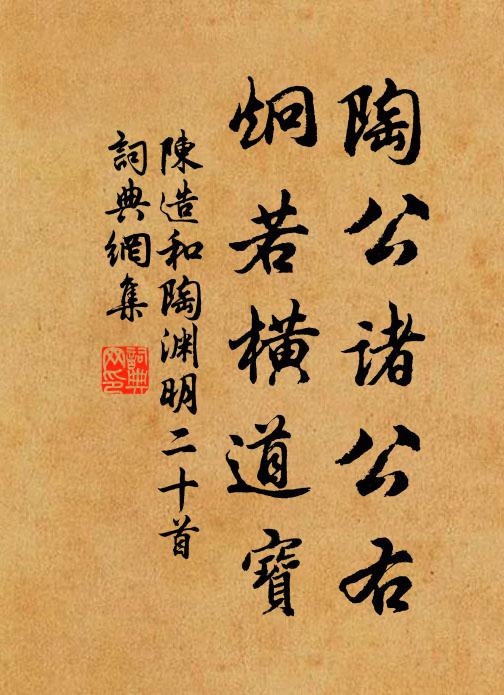 陶公諸公右
炯若橫道寶
陳造和陶淵明二十首
詞典網集
詞典網印